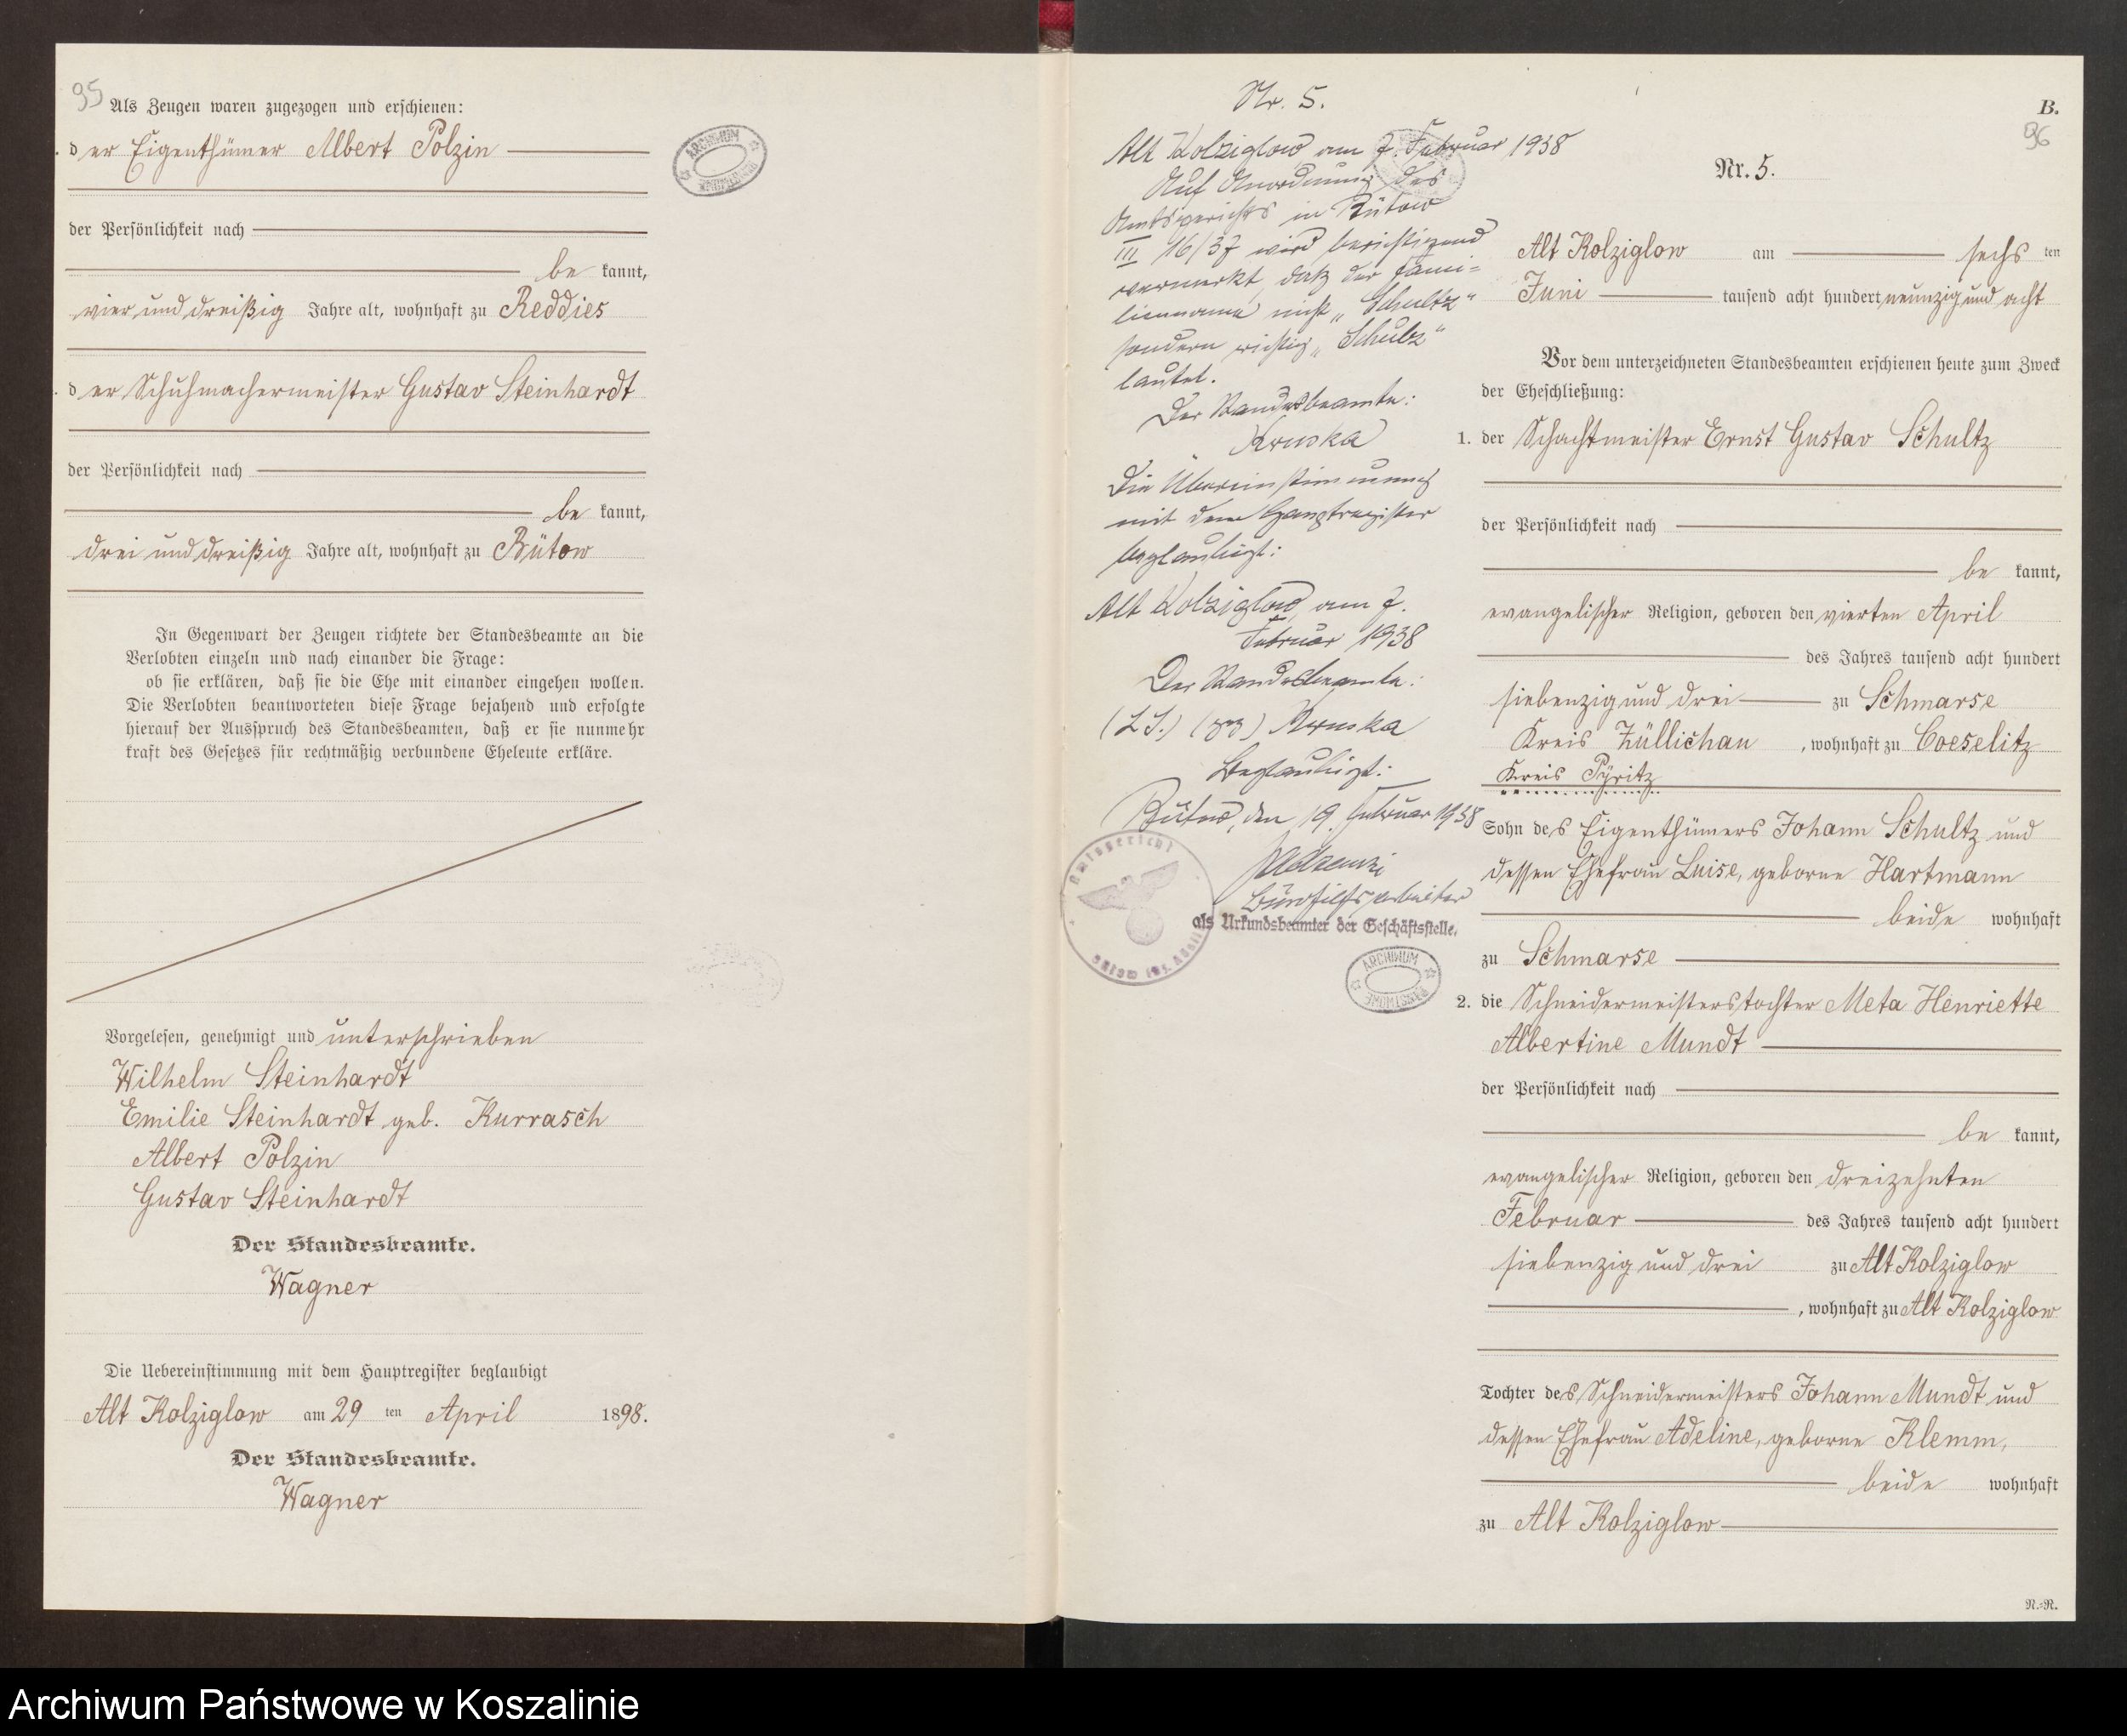 95
Als Zeugen waren zugezogen und erschienen:
d er Eigenthümer Albert Polzin
der Persönlichkeit nach
be kannt,
vier und dreißig Jahre alt, wohnhaft zu Reddies
d er Schuhmachermeister Gustav Steinhardt
der Persönlichkeit nach
be kannt,
drei und dreißig Jahre alt, wohnhaft zu Bütow
In Gegenwart der Zeugen richtete der Standesbeamte an die
Verlobten einzeln und nach einander die Frage:
ob sie erklären, daß sie die Ehe mit einander eingehen wollen.
Die Verlobten beantworteten diese Frage bejahend und erfolgte
hierauf der Ausspruch des Standesbeamten, daß er sie nunmehr
kraft des Gesetzes für rechtmäßig verbundene Eheleute erkläre.
Vorgelesen, genehmigt und unterschrieben
Wilhelm Steinhardt
Emilie Steinhardt geb. Kurrasch
Albert Polzin
Gustav Steinhardt
Der Standesbeamte.
Wagner
Die Uebereinstimmung mit dem Hauptregister beglaubigt
Alt Kolziglow am 29 ten April 1898.
Der Standesbeamte.
Wagner
ARCHIWUM
Nr. 5.
Alt Kolziglow, am 7. Februar 1938
Auf Anordnung des
Amtsgerichts in Bütow
III 16/37 wird berichtigend
vermerkt, daß der Fami-
lienname nicht „Schultz"
sondern richtig „Schulz"
lautet.
Der Standesbeamte:
Kruska
Die Übereinstimmung
mit dem Hauptregister
beglaubigt:
Alt Kolziglow, am 7.
Februar 1938
Der Standesbeamte:
(L.S.) (gez) Kruska
Beglaubigt:
Bütow, den 19. Februar 1938
Bürohilfsarbeiter
als Urkundsbeamter der Geschäftsstelle.
Amtsgericht
ARCHIWUM
PAŃSTWOWE
B.
96
Nr. 5.
Alt Kolziglow am sechs ten
Juni tausend acht hundert neunzig und acht
Vor dem unterzeichneten Standesbeamten erschienen heute zum Zweck
der Eheschließung:
1. der Schachtmeister Ernst Gustav Schultz
der Persönlichkeit nach
be kannt,
evangelischer Religion, geboren den vierten April
des Jahres tausend acht hundert
siebenzig und drei zu Schmarse
Kreis Züllichau, wohnhaft zu Coeselitz
Kreis Pyritz
Sohn des Eigenthümers Johann Schultz und
dessen Ehefrau Luise, geborne Hartmann
beide wohnhaft
zu Schmarse
2. die Schneidermeisterstochter Meta Henriette
Albertine Mundt
der Persönlichkeit nach
be kannt,
evangelischer Religion, geboren den dreizehnten
Februar des Jahres tausend acht hundert
siebenzig und drei zu Alt Kolziglow
, wohnhaft zu Alt Kolziglow
Tochter des Schneidermeisters Johann Mundt und
dessen Ehefrau Adeline, geborne Klemm,
beide wohnhaft
zu Alt Kolziglow
N.=N.
Archiwum Państwowe w Koszalinie